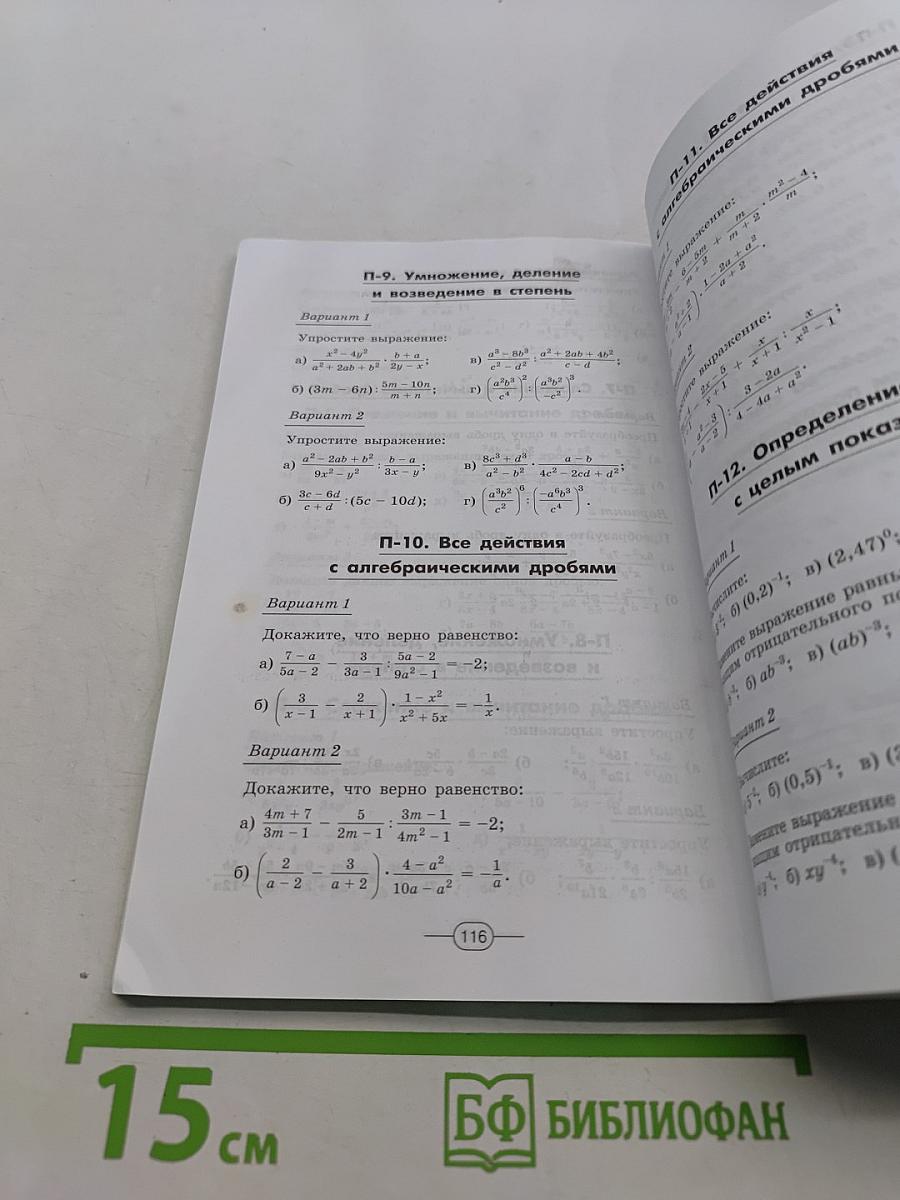 П-9. Умножение, деление
и возведение в степень
Вариант 1
Упростите выражение:
а) (x² − 4y²)/(a² + 2ab + b²) · (b + a)/(2y − x); в) (a³ − 8b³)/(c² − d²) : (a² + 2ab + 4b²)/(c − d);
б) (3m − 6n) : (5m − 10n)/(m + n); г) (a²b³/c⁴)² : (a³b²/−c²)³.
Вариант 2
Упростите выражение:
а) (a² − 2ab + b²)/(9x² − y²) : (b − a)/(3x − y); в) (8c³ + d³)/(a² − b²) · (a − b)/(4c² − 2cd + d²);
б) (3c − 6d)/(c + d) : (5c − 10d); г) (a³b²/c²)⁶ : (−a⁶b³/c⁴)³.
П-10. Все действия
с алгебраическими дробями
Вариант 1
Докажите, что верно равенство:
а) (7 − a)/(5a − 2) − 3/(3a − 1) : (5a − 2)/(9a² − 1) = −2;
б) (3/(x − 1) − 2/(x + 1)) · (1 − x²)/(x² + 5x) = −1/x.
Вариант 2
Докажите, что верно равенство:
а) (4m + 7)/(3m − 1) − 5/(2m − 1) : (3m − 1)/(4m² − 1) = −2;
б) (2/(a − 2) − 3/(a + 2)) · (4 − a²)/(10a − a²) = −1/a.
116
П-11. Все действия
с алгебраическими дробями
выражение:
(6 − 5m)/(m + 2) + m/(m + 2) · (m² − 4)/m;
(1 − 2a + a²)/(a + 2).
выражение:
(2x − 5)/(x + 1) + x/(x + 1) : x/(x² − 1);
: (3 − 2a)/(4 − 4a + a²).
П-12. Определение
с целым показ
1
б) (0,2)⁻¹; в) (2,47)⁰;
выражение равны
отрицательного
б) ab⁻³; в) (ab)⁻³;
2
б) (0,5)⁻⁴; в)
выражение
отрицательн
б) xy⁻⁴; в) (
15 см
БФ БИБЛИОФАН